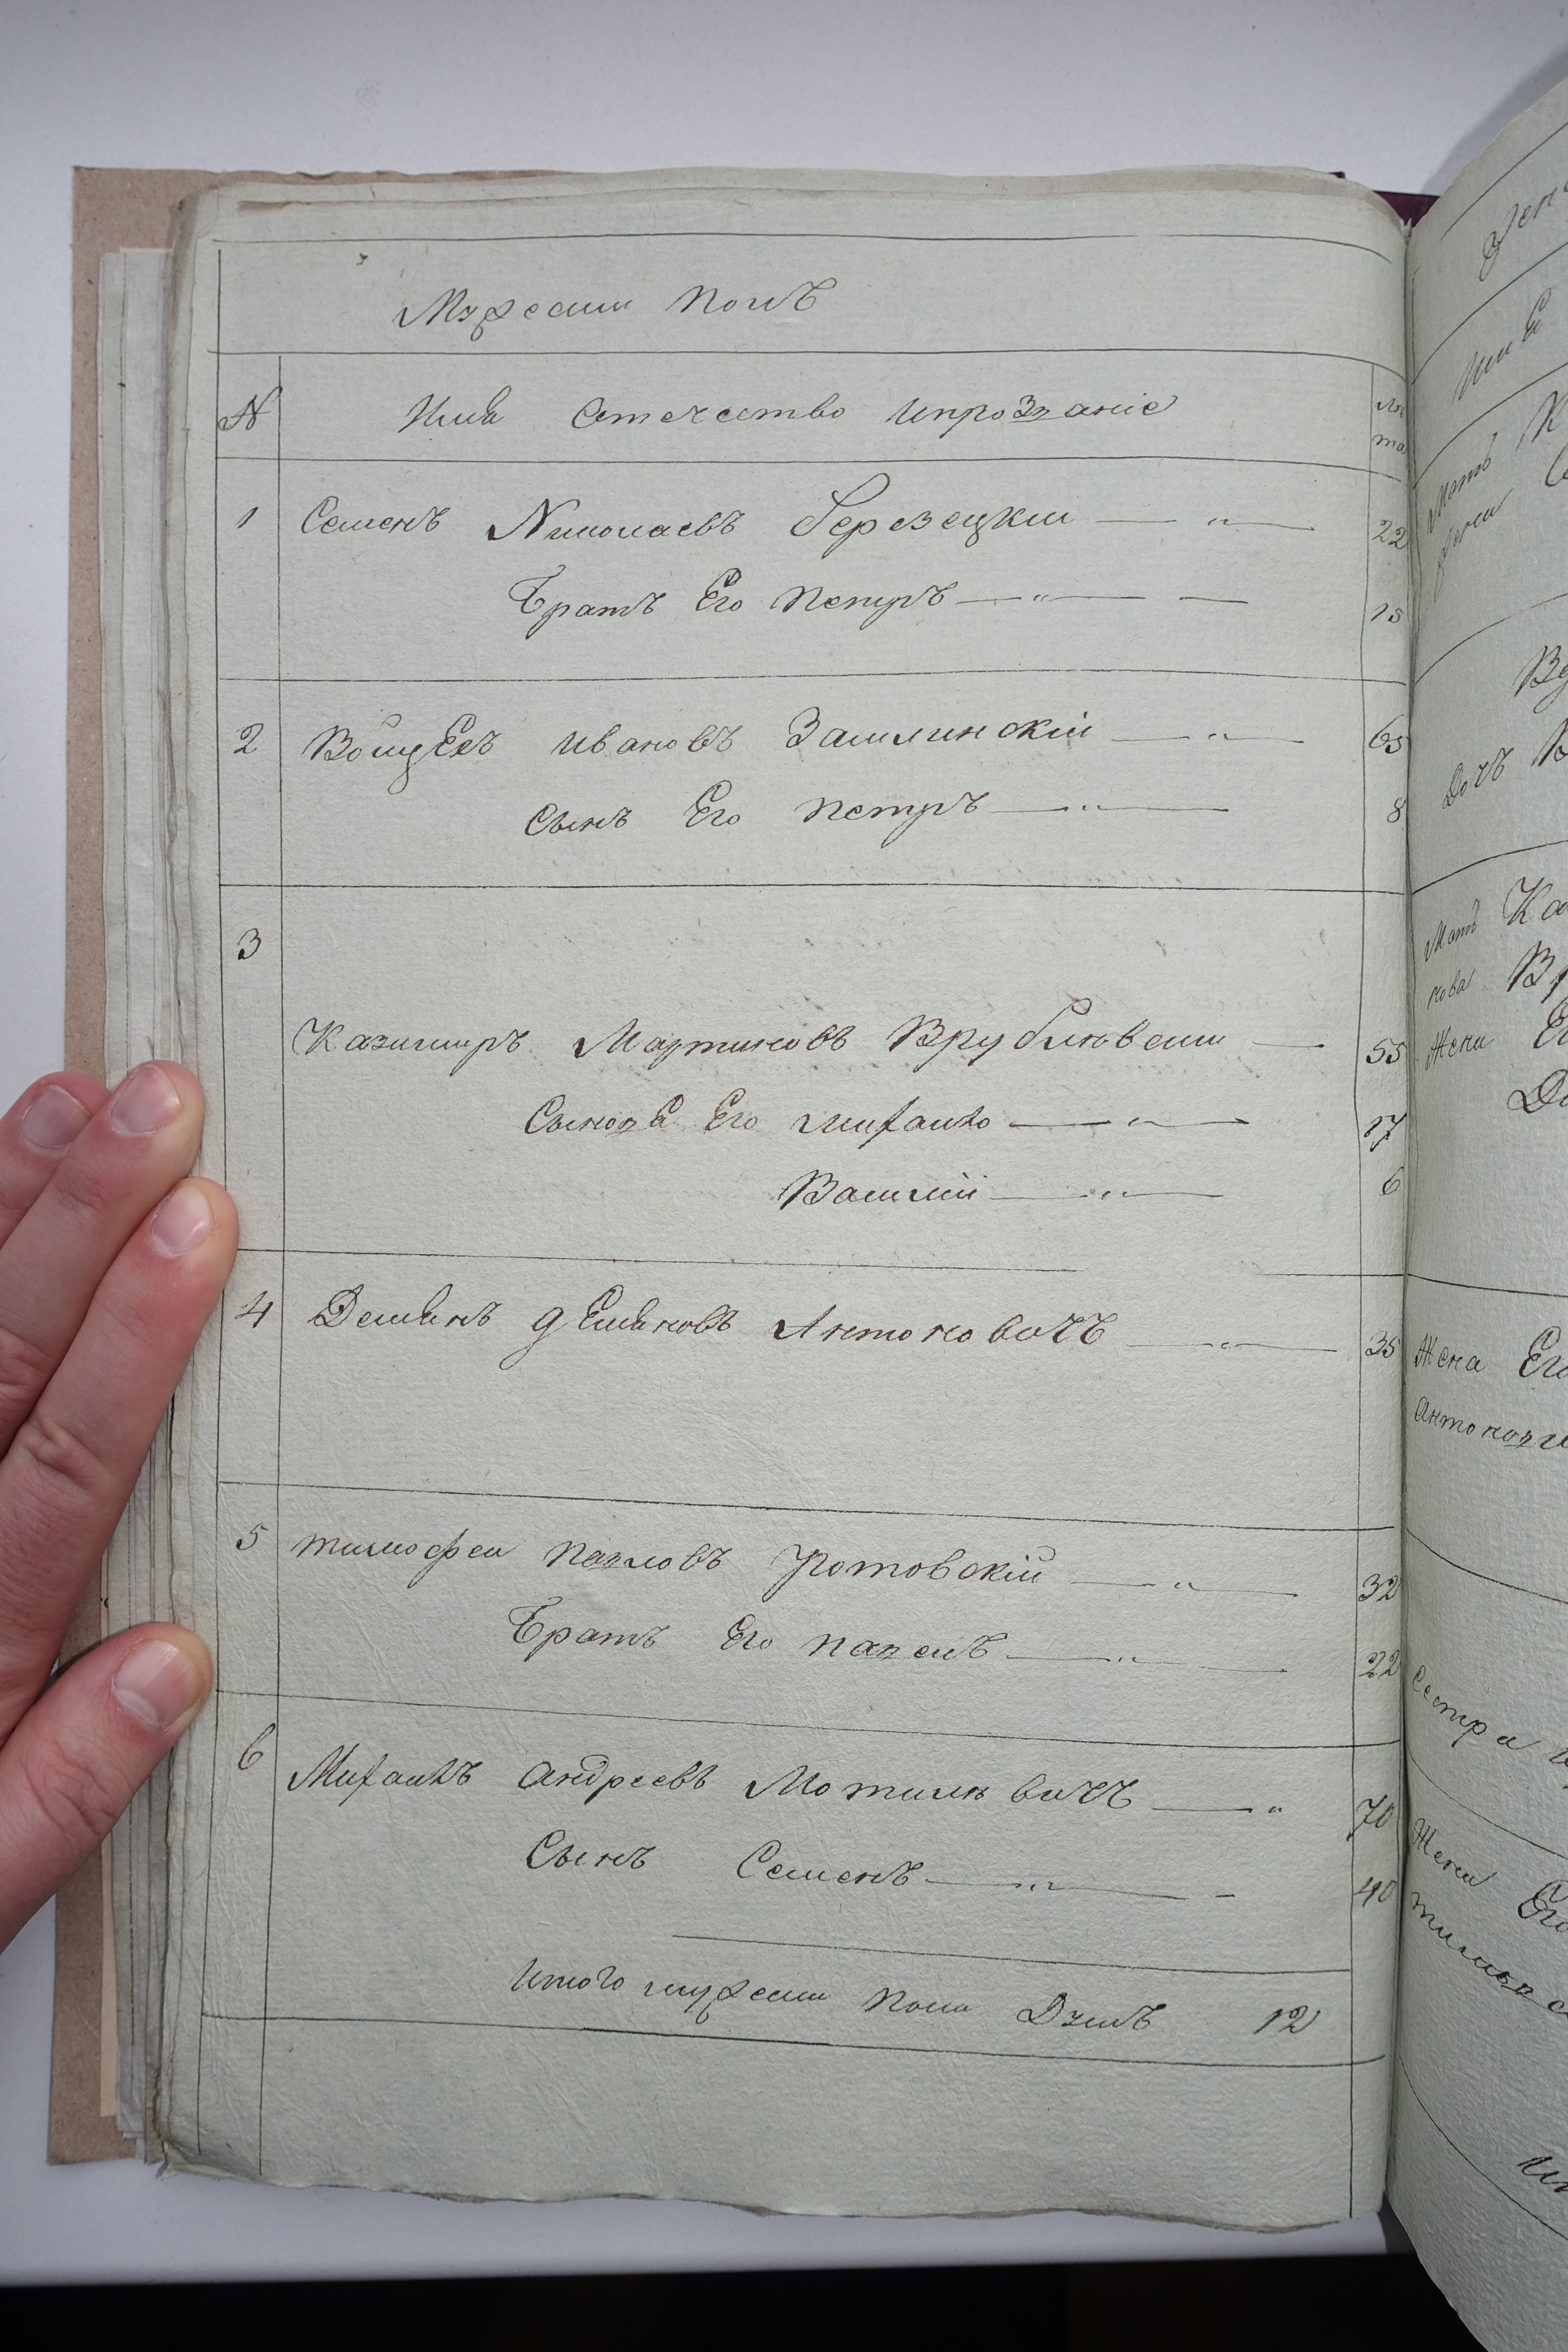 Мужески полъ
№ Имя Отечество ипрозваніе лѣ та
1 Семенъ Николаевъ Березецкіи 22
Братъ Его Петръ 15
2 Войцехъ Ивановъ Замлинскій 65
Сынъ Его Петръ 8
3
Казимиръ Мартиновъ Врублювски 55
Сыновя Его михаило 17
Василій 6
4 Демянъ демяновъ Антоновичъ 35
5 тимофеи павловъ Ротовскій 32
Братъ Его павелъ 22
6 Михаилъ андреевъ Мотилевичъ 70
Сынъ Семенъ 40
Итого мужески пола Душъ 12
Жена Его
Сестра
Дочъ
Жена